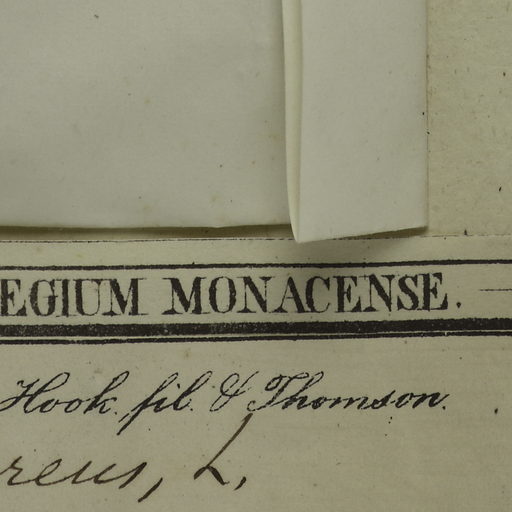 EGIUM MONACENSE.
Hook. fil. & Thomson.
reus, L,